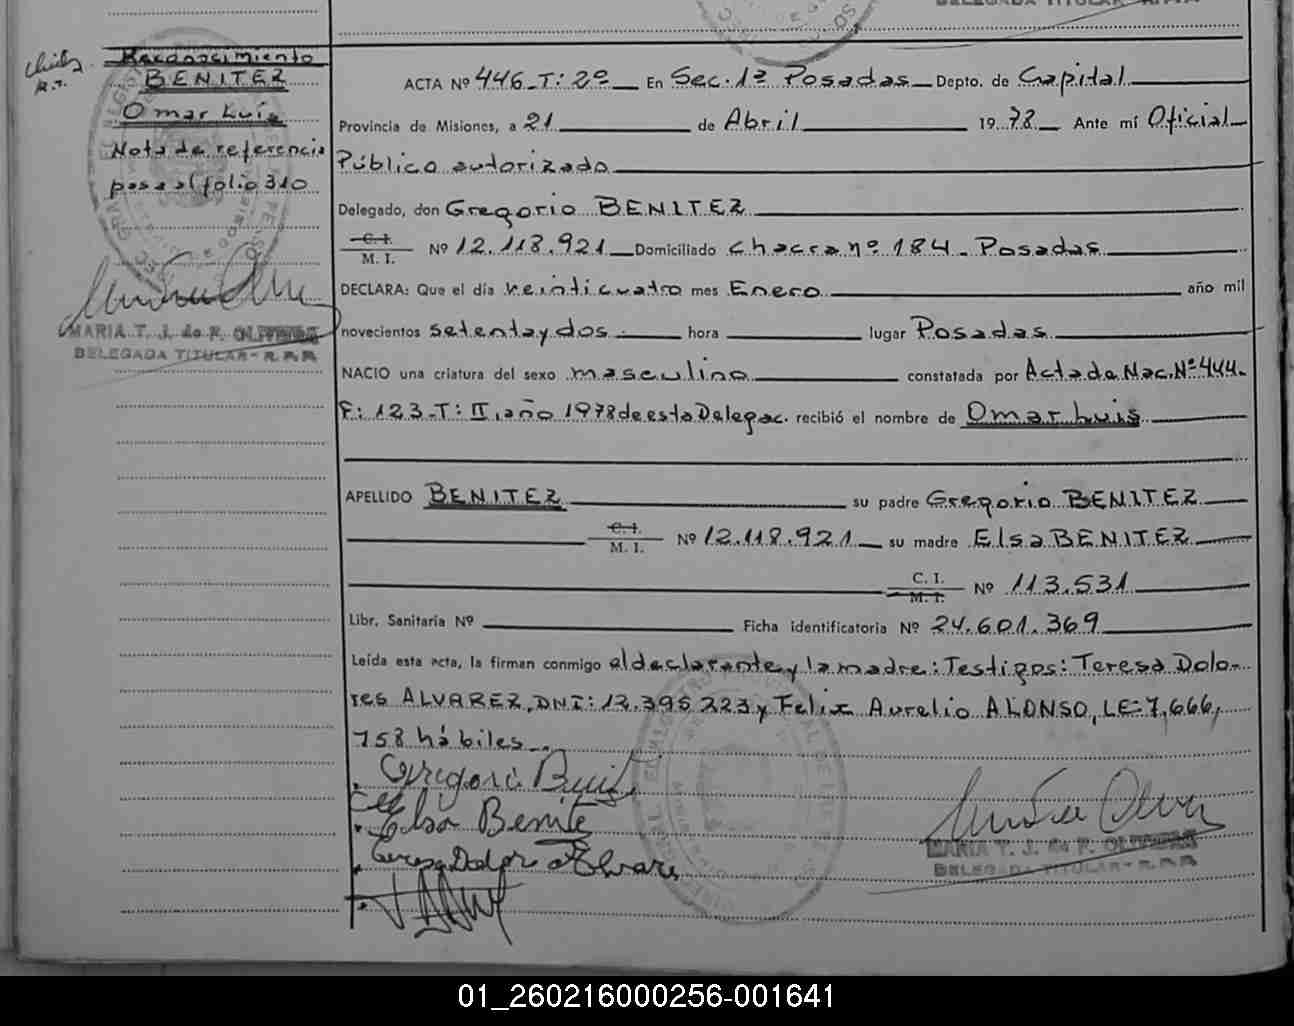 DELEGADA TITULAR - R.P.P.
Reconocimiento
BENITEZ
Omar Luis
Nota de referencia
pasa al folio 310
MARIA T. J. de F. OLIVERA
DELEGADA TITULAR - R.P.P.
ACTA Nº 446_T: 2º En Sec. 1ª Posadas Depto. de Capital
Provincia de Misiones, a 21 de Abril 19 78 Ante mí Oficial
Público autorizado
Delegado, don Gregorio BENITEZ
C. I.
M. I. Nº 12.118.921 Domiciliado chacra nº 184 - Posadas
DECLARA: Que el día veinticuatro mes Enero año mil
novecientos setenta y dos.- hora lugar Posadas
NACIO una criatura del sexo masculino constatada por Acta de Nac. Nº 444-
F: 123-T: II, año 1978 de esta Delegac. recibió el nombre de Omar Luis
APELLIDO BENITEZ su padre Gregorio BENITEZ
C. I.
M. I. Nº 12.118.921 su madre Elsa BENITEZ
C. I.
M. I. Nº 113.531
Libr. Sanitaria Nº Ficha identificatoria Nº 24.601.369
Leída esta acta, la firman conmigo el declarante y la madre: Testigos: Teresa Dolo-
res ALVAREZ, DNI: 12.395.223 y Felix Aurelio ALONSO, LE: 7,666,
758 hábiles.-
Elsa Benite
Teresa Dolor Alvare
MARIA T. J. de F. OLIVERA
DELEGADA TITULAR - R.P.P.
01_260216000256-001641